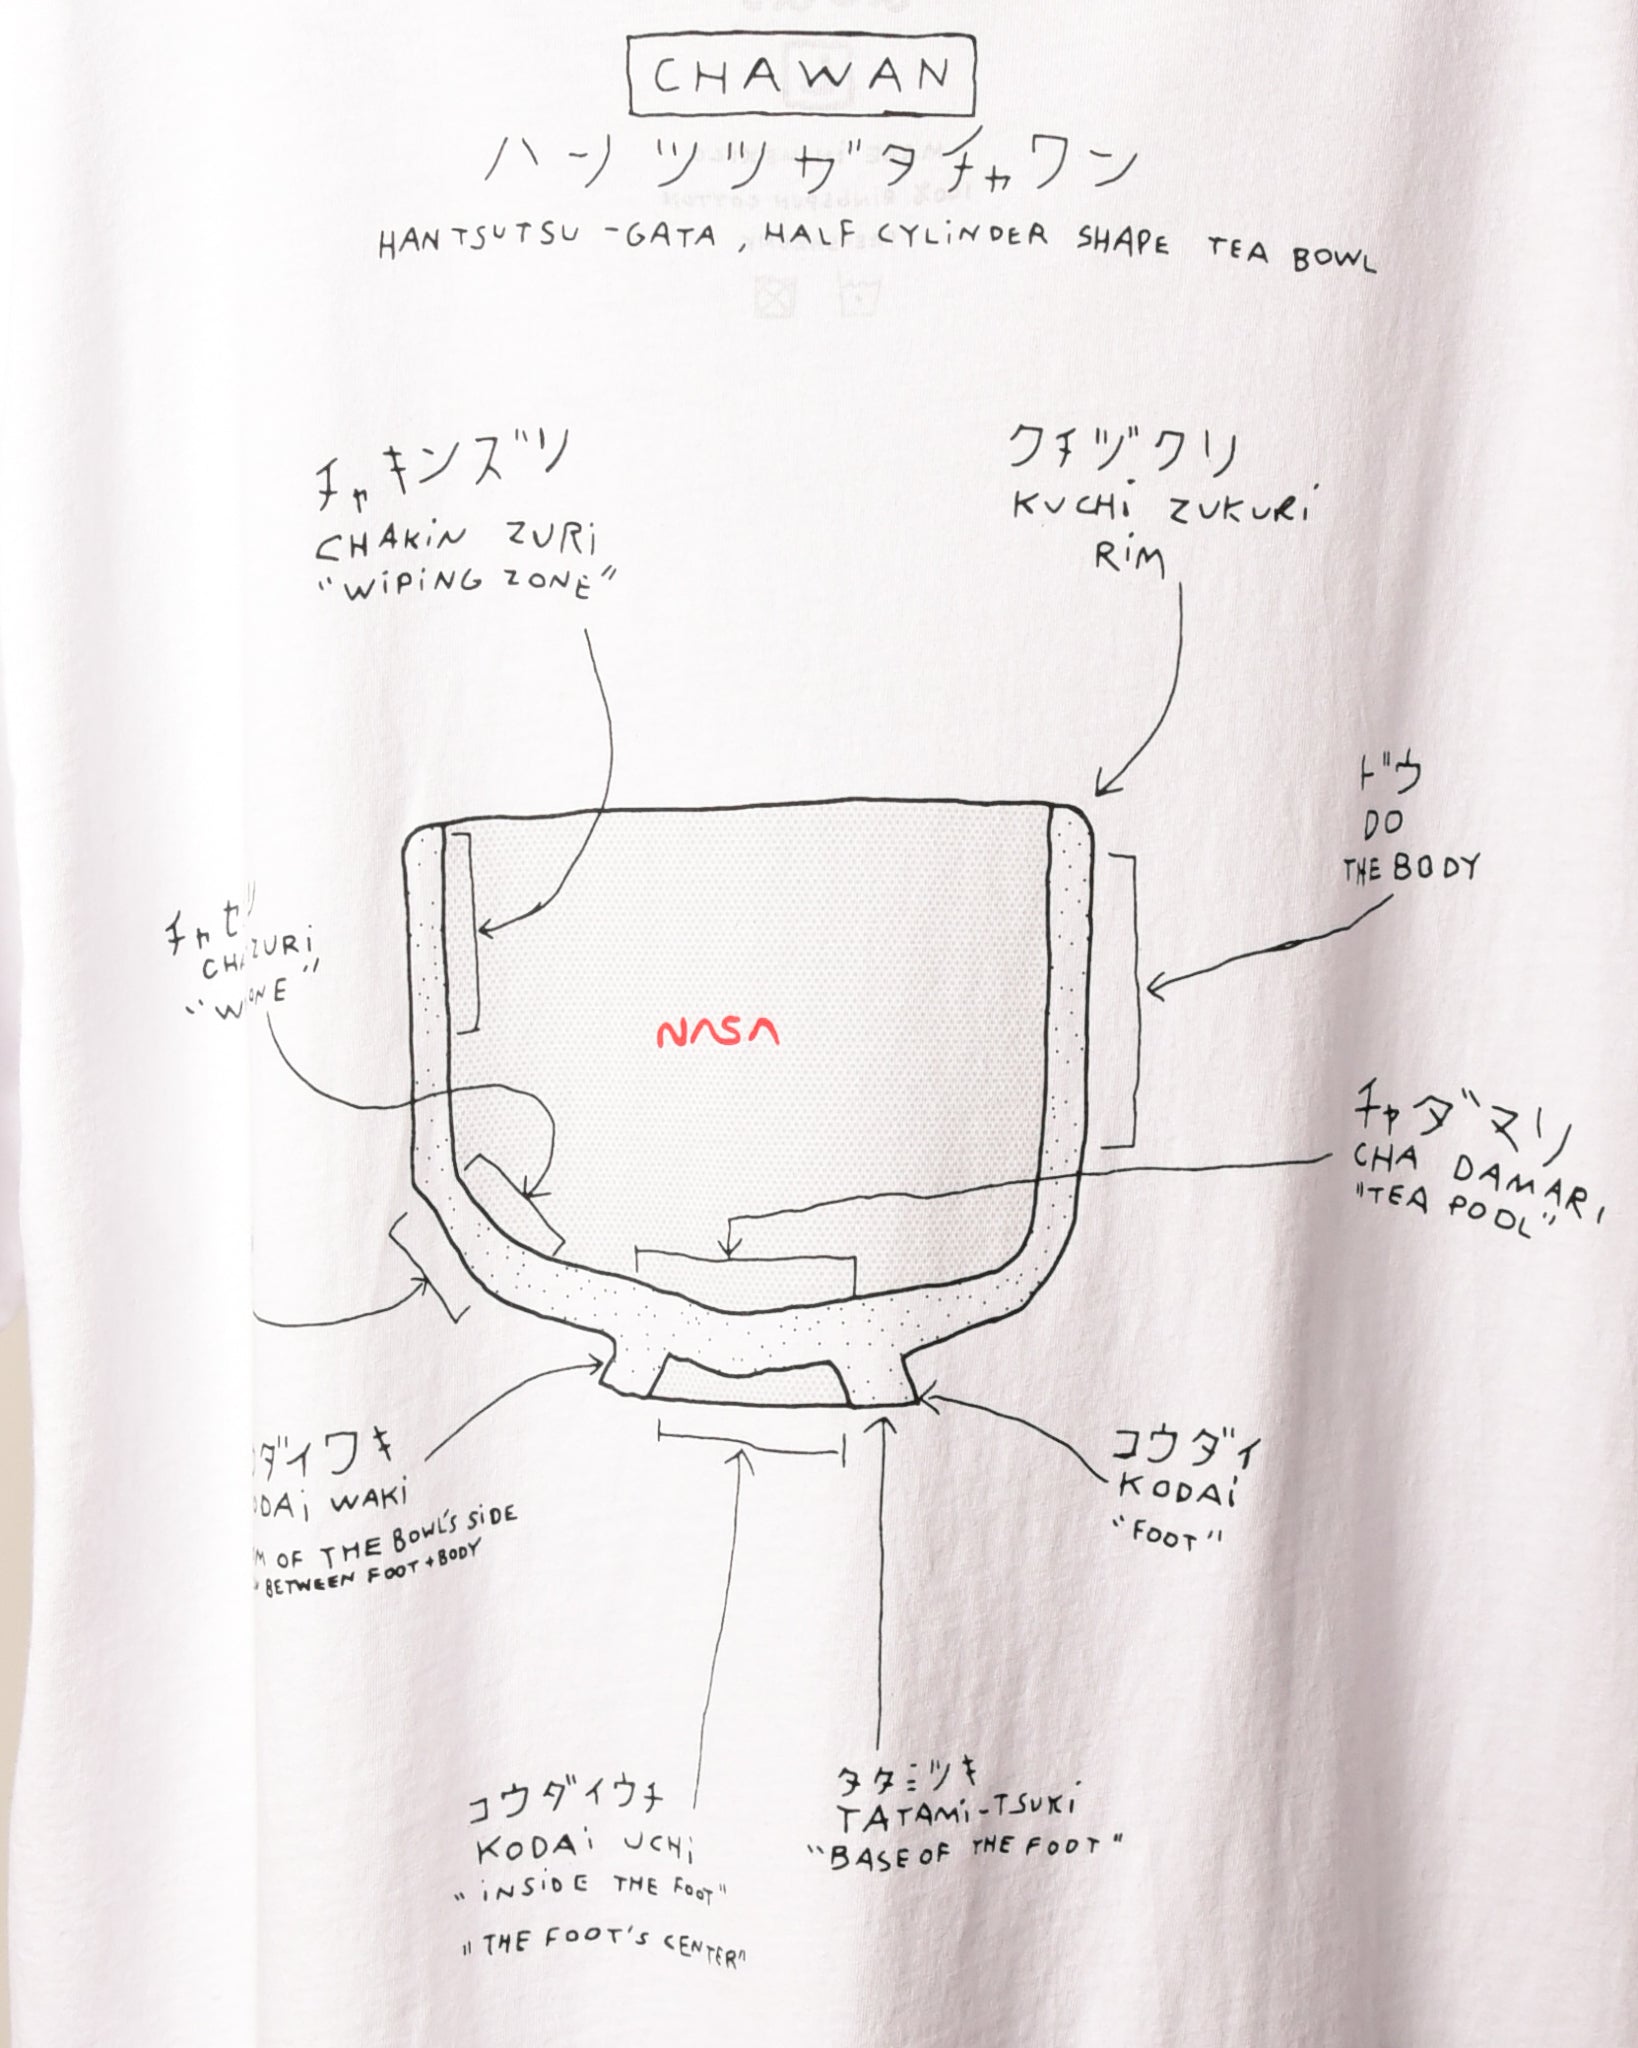 CHAWAN
ハンツツガタチャワン
HANTSUTSU-GATA, HALF CYLINDER SHAPE TEA BOWL
チャキンズリ
CHAKiN ZURi
"WiPiNG ZONE"
クチヅクリ
KUCHi ZUKURi
RiM
ドウ
DO
THE BODY
チャセ
ZURi
NASA
チャダマリ
CHA DAMARi
"TEA POOL"
ダイワキ
WAKi
OF THE BOWL'S SiDE
BETWEEN FOOT + BODY
コウダイ
KODAi
"FOOT"
コウダイウチ
KODAi UCHi
"iNSiDE THE FOOT"
"THE FOOT'S CENTER"
タタミツキ
TATAMi-TSUKi
"BASE OF THE FOOT"